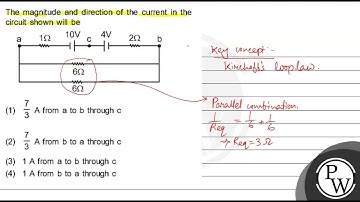 The magnitude and direction of the current in the
circuit shown will be
10V 4V
a 1Ω c 2Ω b
6Ω
6Ω
(1) 7/3 A from a to b through c
(2) 7/3 A from b to a through c
(3) 1 A from a to b through c
(4) 1 A from b to a through c
Key concept:-
Kirchoff's loop law.
Parallel combination
1/Req = 1/6 + 1/6
→ Req = 3Ω
P
W